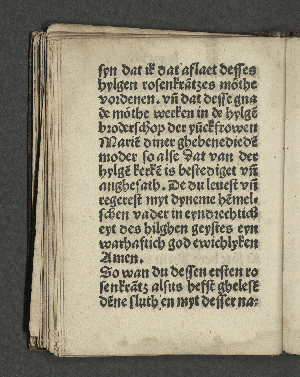 syn dat ik dat aflaet desses
hylgen rosenkrātzes mōthe
vordenen. vn̄ dat desse gna
de mōthe werken in de hylgē
broderschop der yūckfrowen
Mariē dyner ghebenediedē
moder so alse dat van der
hylgē kerkē is bestediget vn̄
anghesath. De du leuest vn̄
regerest myt dyneme hēmel-
schen vader in eyndrechtich
eyt des hilghen geystes eyn
warhaftich god ewichlyken
Amen.
So wan du dessen ersten ro
senkrātz alsus hefst ghelesē
dēne sluth en myt desser na-